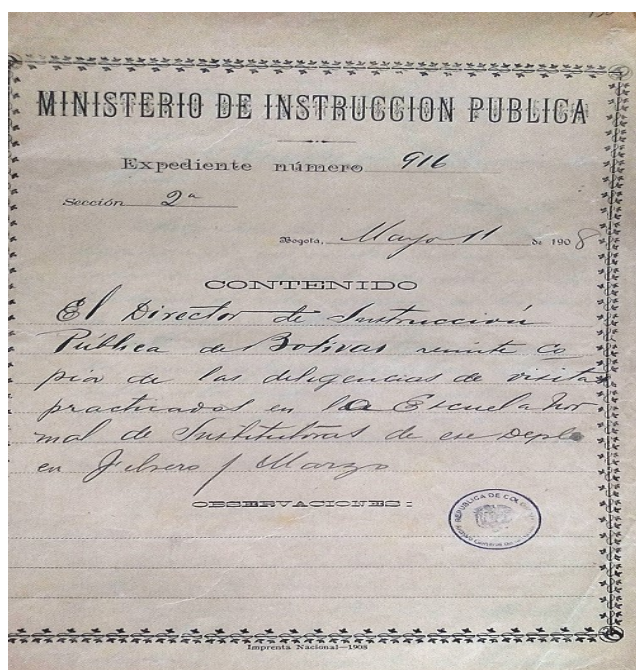 MINISTERIO DE INSTRUCCION PUBLICA
Expediente número 916
Sección 2ª
Bogotá, Mayo 11 de 1908
CONTENIDO
El Director de Instrucción
Pública de Bolivar remite co
pia de las diligencias de visitas
practicadas en la Escuela Nor
mal de Institutoras de ese Depto
en Febrero y Marzo
OBSERVACIONES:
REPUBLICA DE COLOMBIA
Imprenta Nacional—1908